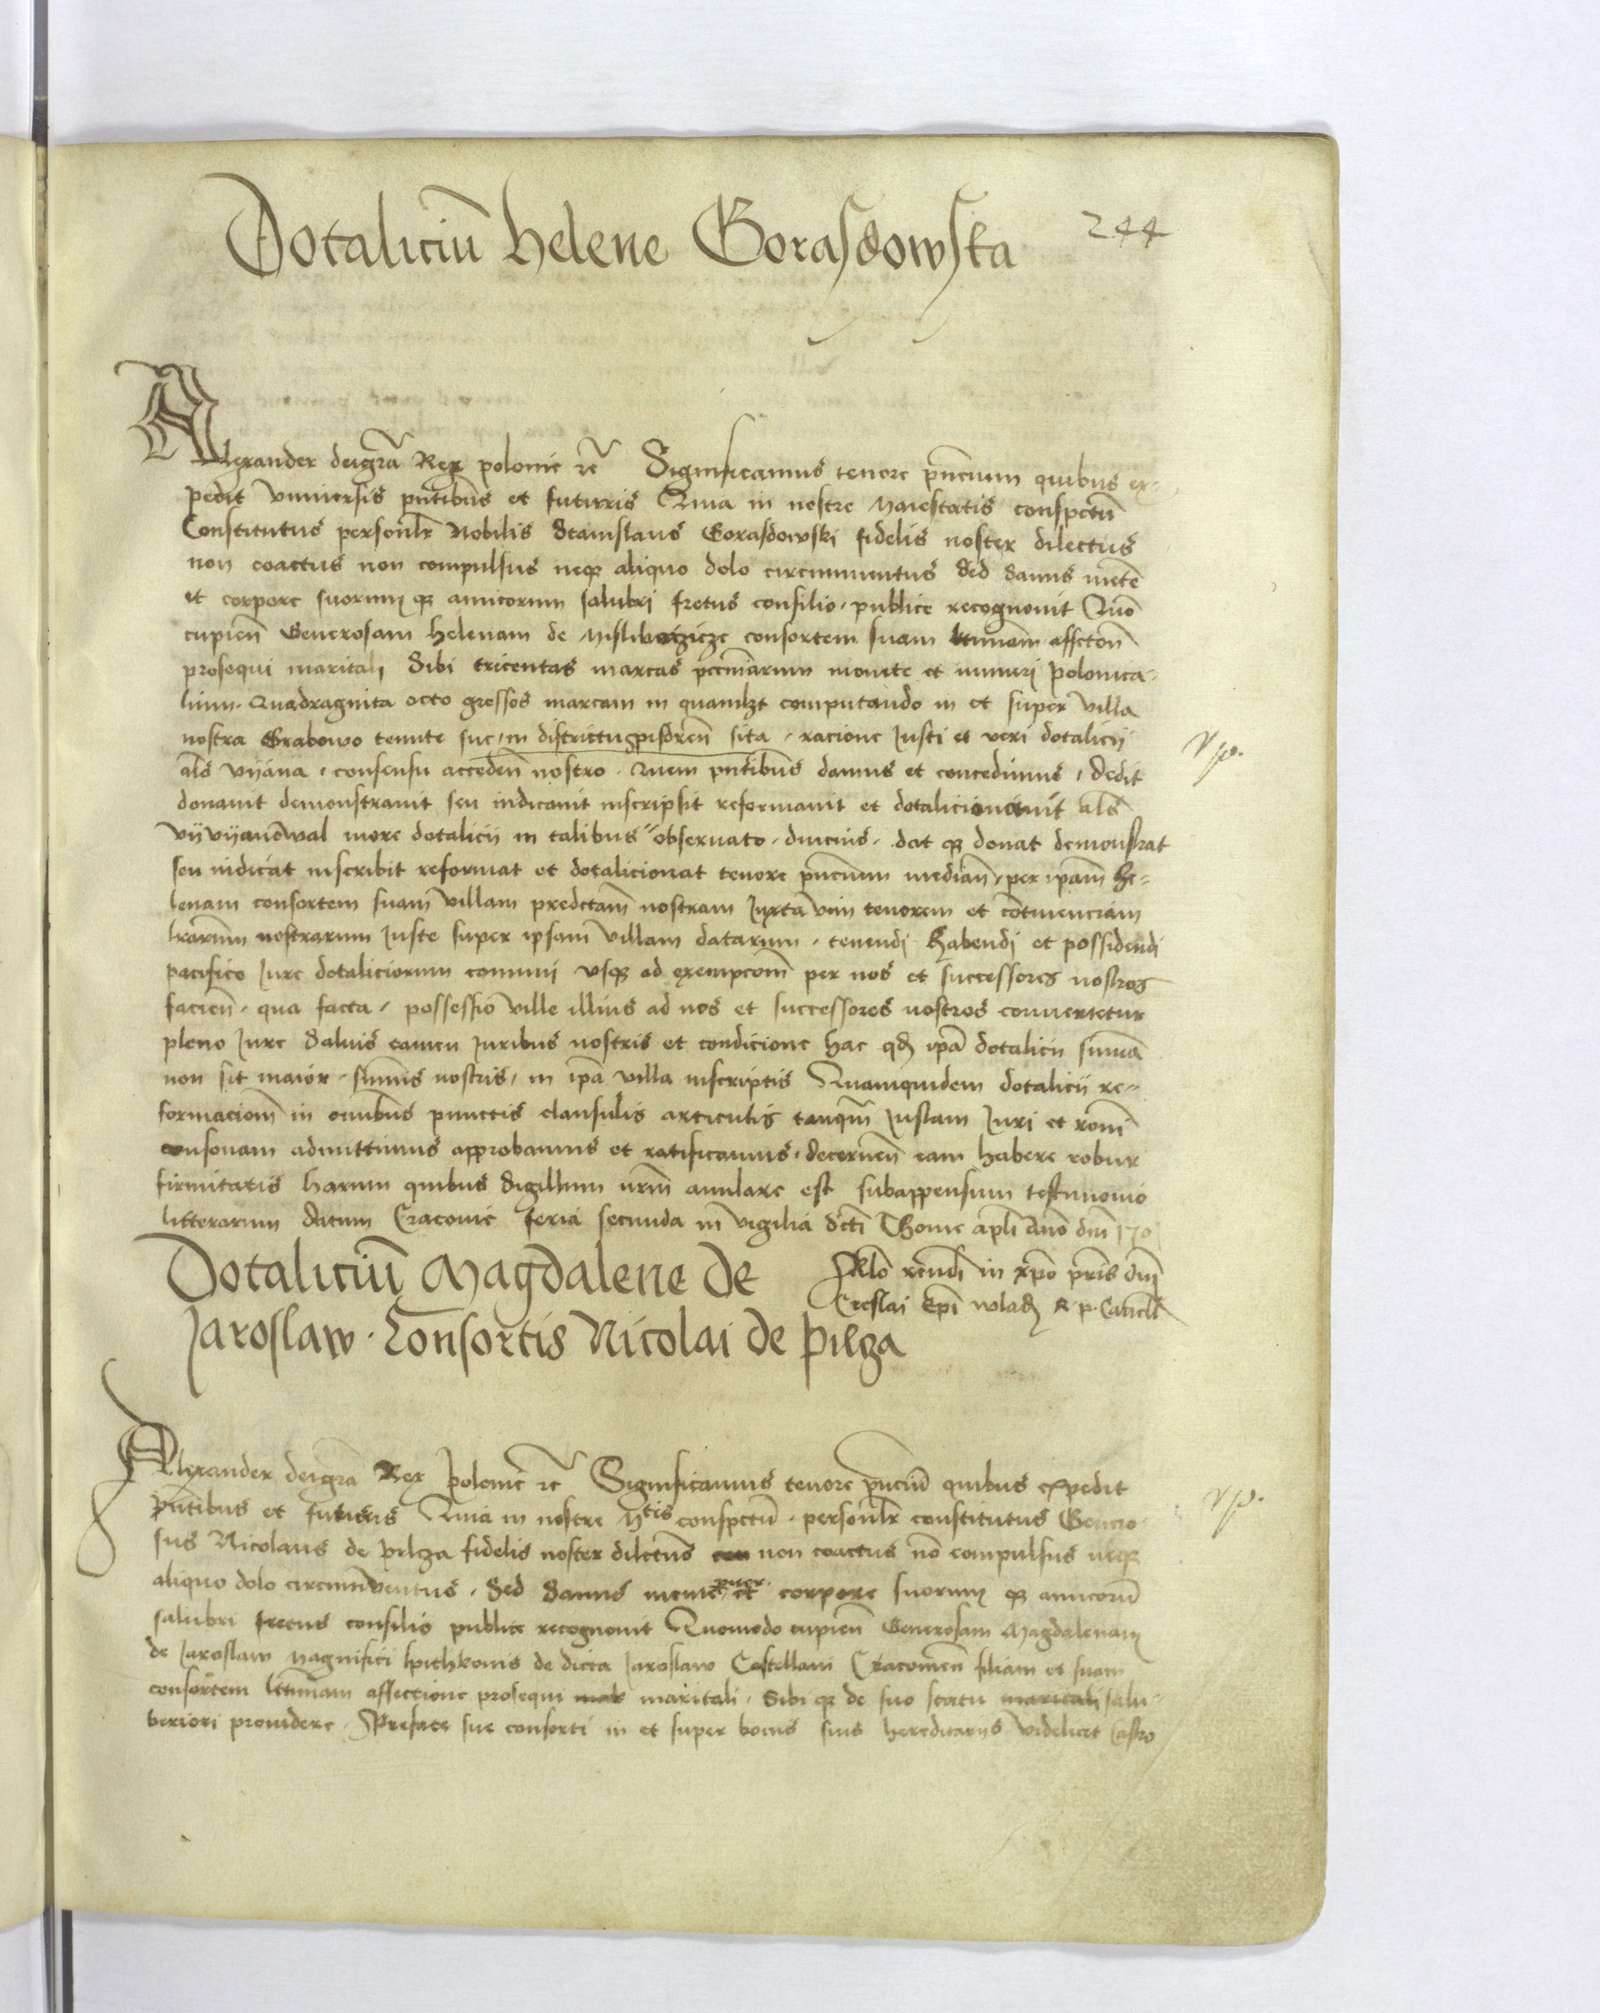 Dotaliciū Helene Gorasdowska 244
Alexander deigrā Rex polonie rc̄ Significamus tenore pn̄cium quibus ex-
pedit Vniuersis pn̄tibus et futuris Quia in nostre Maiestatis conspctū
Constitutus personlr̄ Nobilis Stanislaus Gorasdowski fidelis noster dilectus
non coactus non compulsus neqȝ aliquo dolo circumuentus Sed sanus mēte
et corpore suorumqȝ amicorum salubri fretus consilio, publice recognouit Quō
cupien̄ Generosam Helenam de consortem suam ltimam affcton̄
prosequi maritali Sibi tricentas marcas pccniarum monete et numeri polonica-
lium. Quadraginta octo grossos marcam in quamlȝt computando in et super villa
nostra Grabowo tenute sue in districtu pisdren̄ sita, racione Justi et veri dotalicij
al̄s vijana, consensu acceden̄ nostro. Quem pn̄tibus damus et concedimus, dedit
donauit demonstrauit seu indicauit inscripsit reformauit et dotalicionauit al̄s
vijvijanowal more dotalicij in talibus obseruato. diucius. dat qȝ donat demonstrat
seu indicat inscribit reformat et dotalicionat tenore pn̄cium median̄, per ipam̄ He-
lenam consortem suam villam predctam̄ nostram Juxta vim tenorem et cōtinenciam
lrarum nostrarum Juste super ipsam villam datarum. tenendj habendj et possidendi
pacifice Jure dotaliciorum comuni vsqȝ ad exempcom̄ per nos et successores nostros
facien̄. qua facta, possessio ville illius ad nos et successores nostros conuertetur
pleno Jure Saluis tamen Juribus nostris et condicione hac qđ ipa dotalicij suma
non sit maior. sumis nostris, in ipa villa inscriptis Quamquidem dotalicij re-
formaciom̄ in omibus punctis clausulis articulis tanqm̄ Justam Juri et rom̄
consonam admittimus approbamus et ratificamus. decernen̄ eam habere robur
firmitatis harum quibus Sigillum nrm̄ annulare est subappensum testimonio
litterarum datum Cracouie feria secunda in vigilia scti Thome apli Anō dni
Dotaliciū Magdalene de Rlō rn̄di in xpō pris dni
Jaroslaw. Consortis Nicolai de pilza Creslai epi wlađ R. p. Cancl̄
Alexander deigrā Rex polonie rc̄ Significamus tenore pn̄ciū quibus expedit
pn̄tibus et futuris Quia in nostre Mtis conspctū. personlr̄ constitutus Genero-
sus Nicolaus de pilza fidelis noster dilctus non coactus nō compulsus neqȝ
aliquo dolo circumuentus. Sed sanus mente et corpore suorumqȝ amicorū
salubri fretus consilio publice recognouit Quomodo cupien̄ Generosam Magdalenam
de Jaroslaw magnifici Spithkonis de dicta Jaroslaw Castellani Cracouien̄ filiam et suam
consortem ltimam affeccione prosequi maritali. Sibi qȝ de suo statu salu-
beriori prouidere. Prefate sue consorti in et super bonis suis hereditarijs videlicet Castro